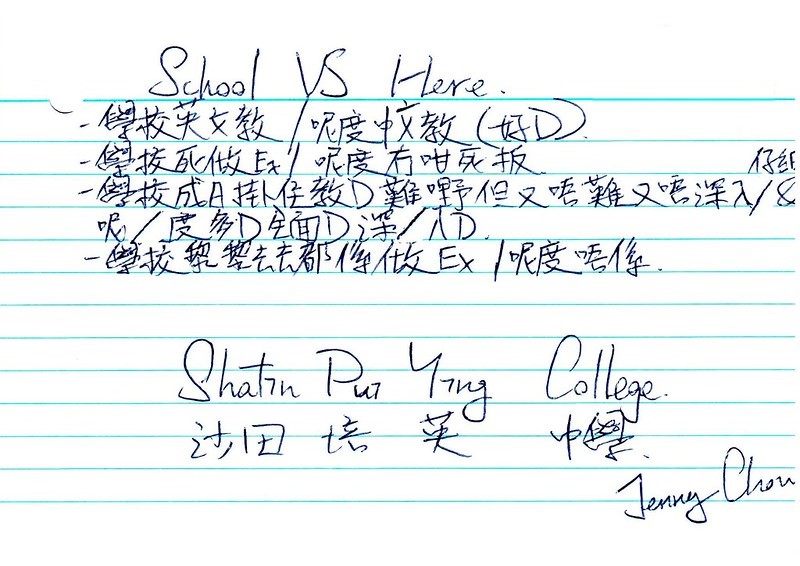 School VS Here.
-學校英文教/呢度中文教(好D)
-學校死做Ex/呢度冇咁死板
仔細
-學校成日掛住教D難嘢但又唔難又唔深入/&
呢/度多D全面D深/入D.
-學校嚟嚟去去都係做Ex/呢度唔係.
Shatin Pui Ying College.
沙田培英中學.
Jenny Chou